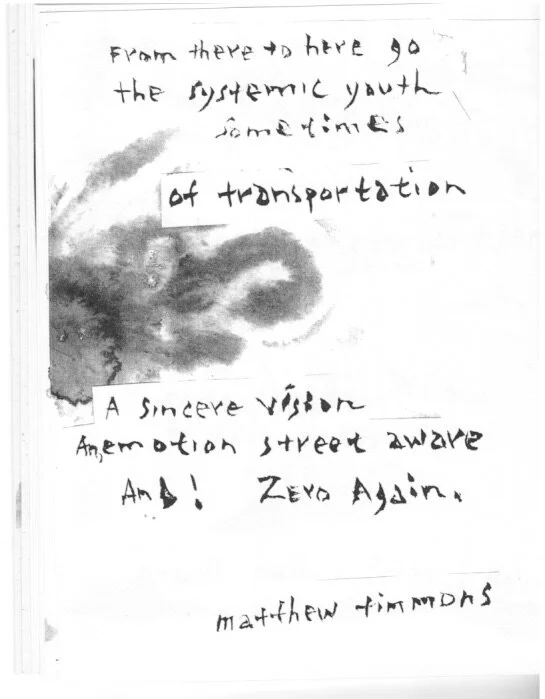 From there to here go
the systemic youth
sometimes
of transportation
A sincere vision
An, emotion street aware
And! Zero Again.
matthew timmons